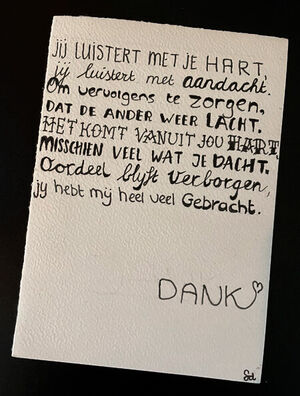 jij LUISTERT MET JE HART,
jij luistert met aandacht.
Om vervolgens te zorgen,
DAT DE ANDER WEER LACHT.
HET KOMT VANUIT JOU HART,
MISSCHIEN VEEL WAT JE DACHT.
Oordeel blijft verborgen,
jij hebt mij heel veel Gebracht.
DANK